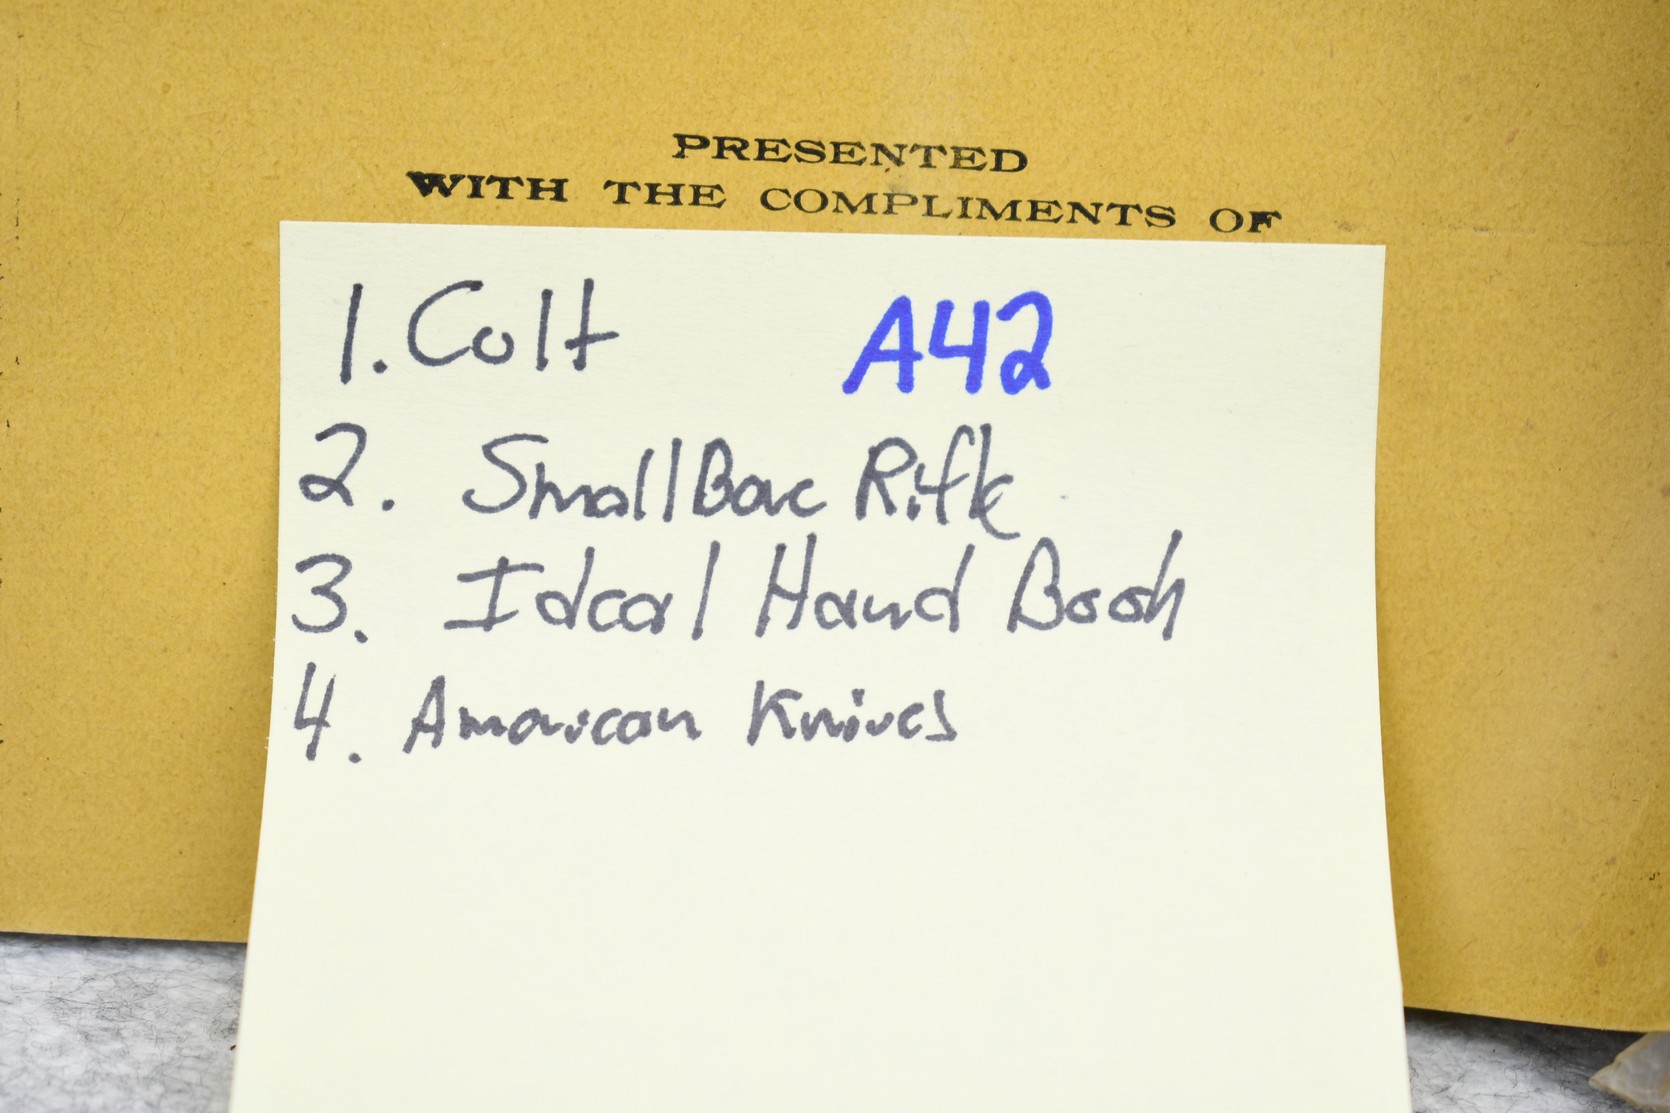 PRESENTED
WITH THE COMPLIMENTS OF
1. Colt A42
2. Small Bore Rifle
3. Ideal Hand Book
4. American Knives